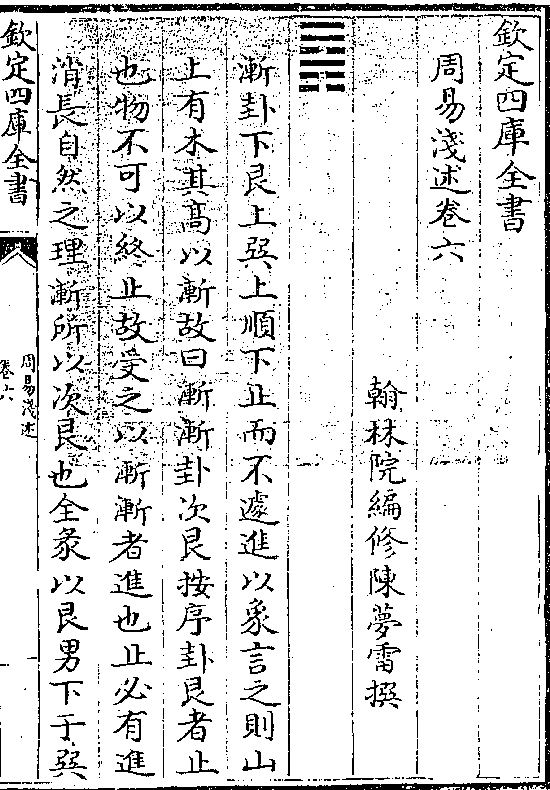 欽定四庫全書
周易淺述卷六
翰林院編修陳夢雷撰
漸卦下艮上巽上順下止而不遽進以象言之則山
上有木其髙以漸故曰漸漸卦次艮按序卦艮者止
也物不可以終止故受之以漸漸者進也止必有進
消長自然之理漸所以次艮也全彖以艮男下于巽
欽定四庫全書
周易淺述
卷六